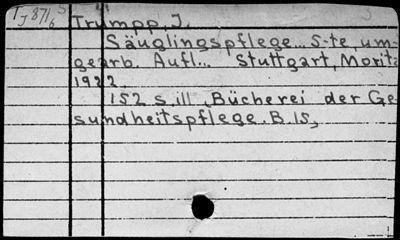 Trumpp, J.
Säuglingspflege... 5-te, um-
gearb. Aufl... Stuttgart, Moritz
1922.
152 s. ill. Bücherei der Ge-
sundheitspflege. B. 15,